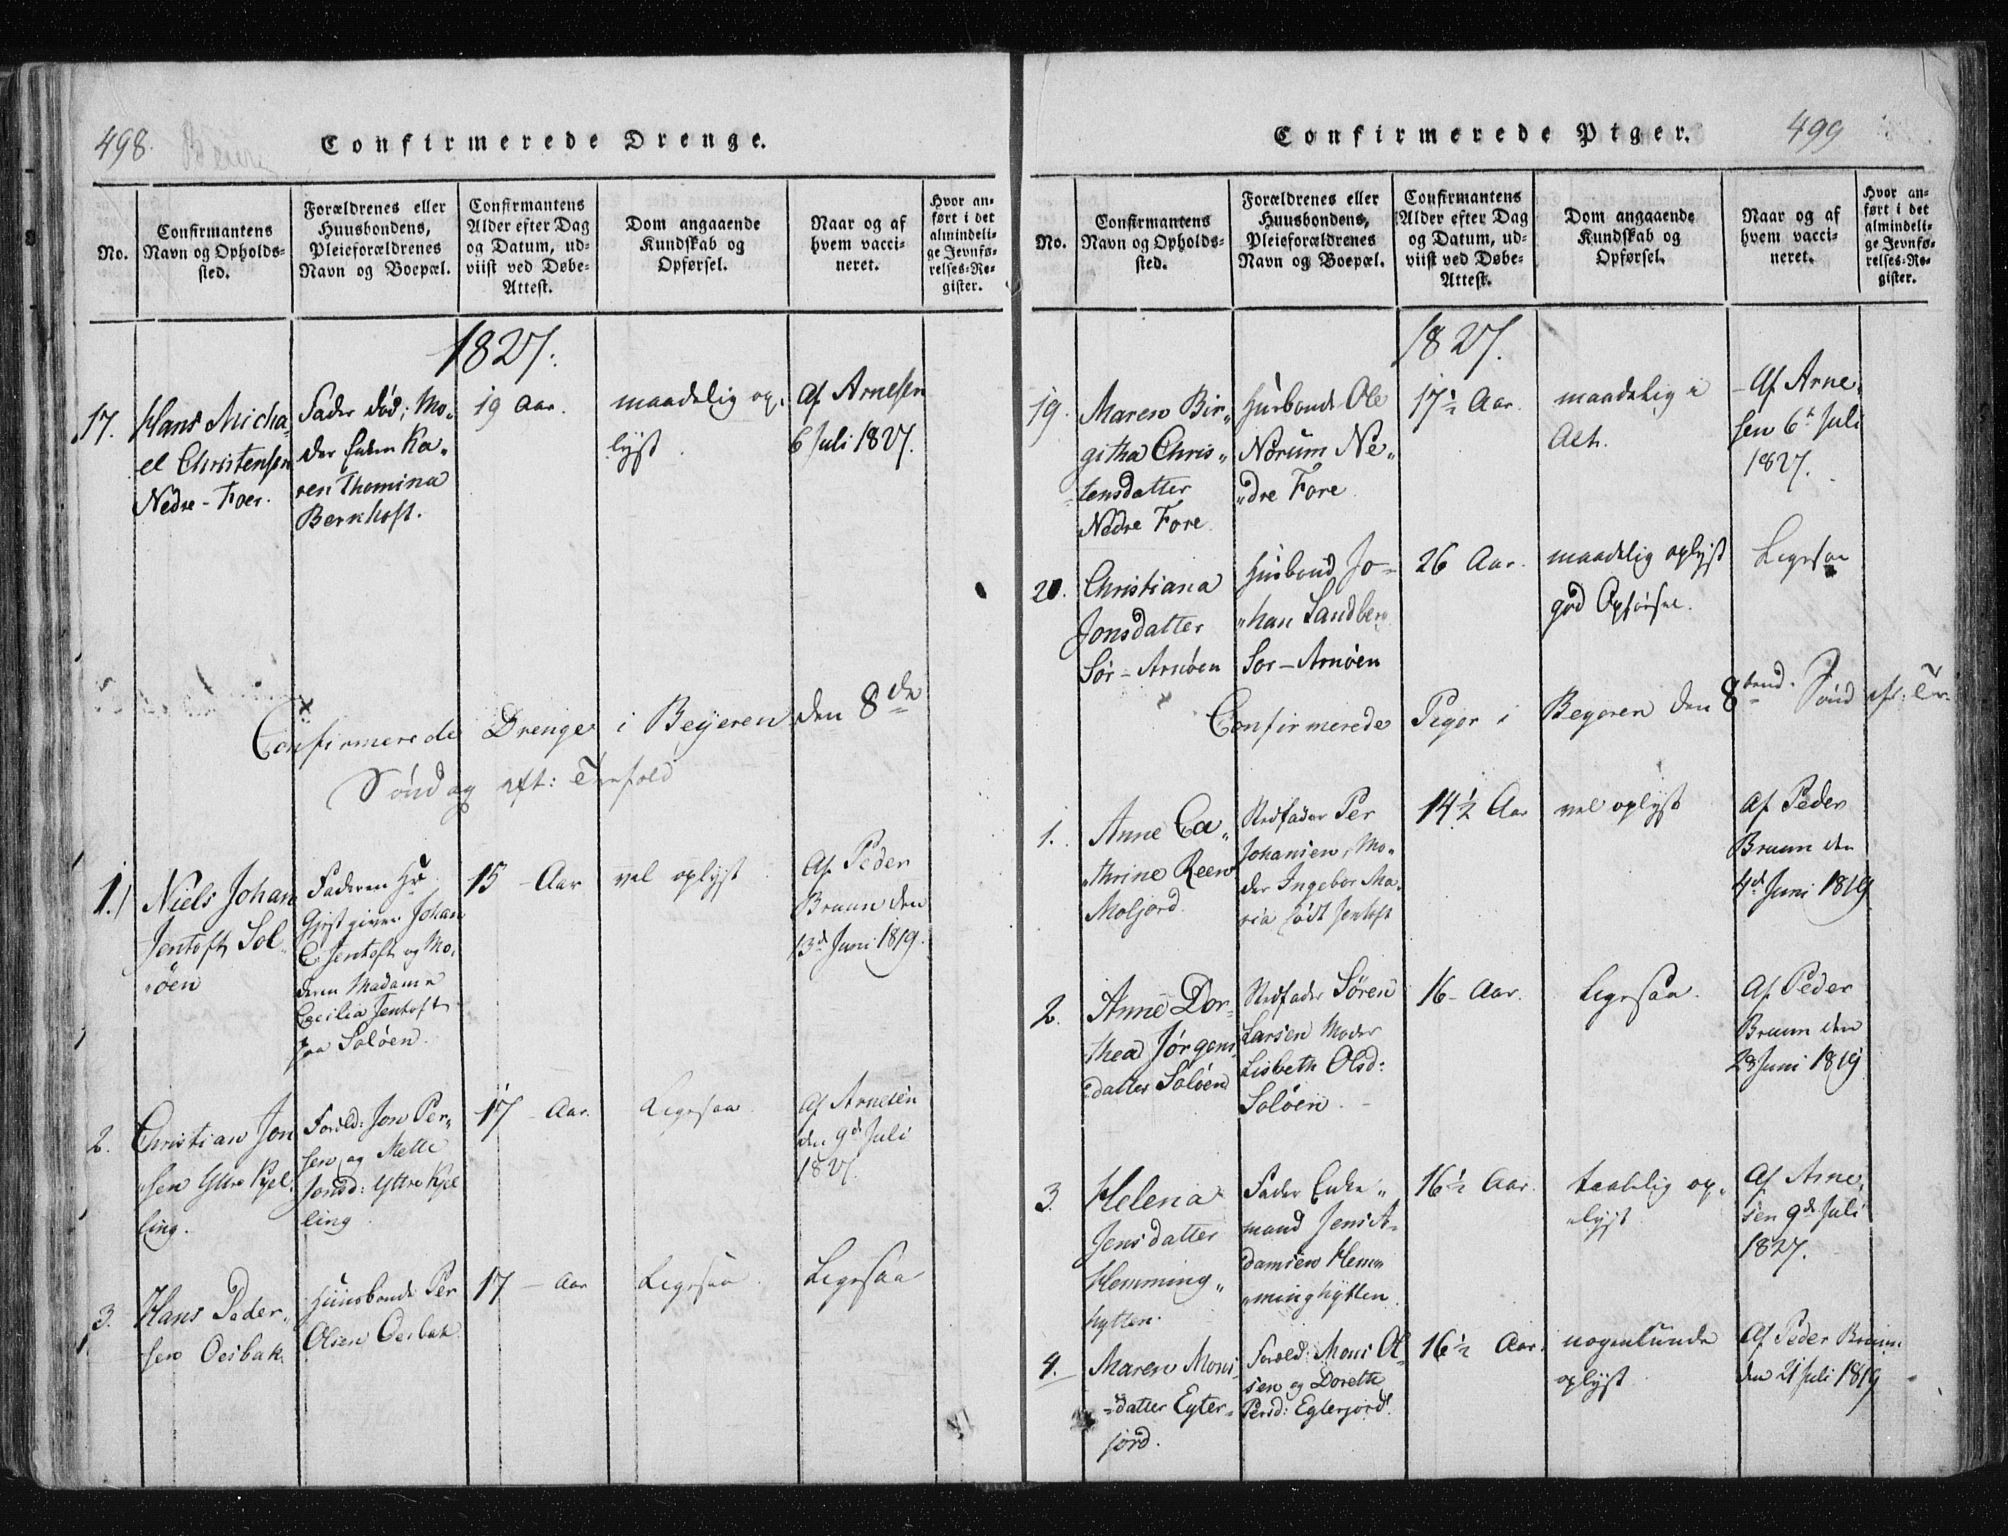 498.
Confirmerede Drenge.
No.
Confirmantens
Navn og Opholds-
sted.
Forældrenes eller
Huusbondens,
Pleieforældrenes
Navn og Boepæl.
Confirmantens
Alder efter Dag
og Datum, ud-
viist ved Døbe-
Attest.
Dom angaaende
Kundskab og
Opførsel.
Naar og af
hvem vacci-
neret.
Hvor an-
ført i det
almindeli-
ge Jevnfø-
relses-Re-
gister.
1827.
17.
Hans Micha-
el Christensen
Nedre-Foer.
Fader død; Mo-
der Enken Ka-
ren Thomina
Bernhoft.
19 Aar.
maadelig op-
lyst.
Af Arnesen
6 Juli 1827.
Confirmerede Drenge i Beyeren den 8de
Søndag eft: Trefold
1.
Niels Johan
Jentoft Sol-
øen
Faderen Hr
Gjestgiver Johan
C. Jentoft og Mo-
deren Madame
Cecilia Jentoft
paa Soløen.
15 - Aar
vel oplyst
Af Peder
Bruun den
13d Juni 1819.
2.
Christian Jon
sen Yttre Kjel
ling.
Foræld: Jon Per-
sen og Mette
Jonsd: Yttre Kjel
ling
17 - Aar.
Ligesaa
Af Arnesen
den 9d Juli
1827.
3.
Hans Peder-
sen Oesbak
Huusbonde Per
Olsen Oesbak
17 - Aar
Ligesaa
Ligesaa
Confirmerede Piger.
499
No.
Confirmantens
Navn og Opholds-
sted.
Forældrenes eller
Huusbondens,
Pleieforældrenes
Navn og Boepæl.
Confirmantens
Alder efter Dag
og Datum, ud-
viist ved Døbe-
Attest.
Dom angaaende
Kundskab og
Opførsel.
Naar og af
hvem vacci-
neret.
Hvor an-
ført i det
almindeli-
ge Jevnfø-
relses-Re-
gister.
1827.
19.
Maren Bir-
githa Chris-
tensdatter
Nedre Fore
Husbonde Ole
Norum Ne-
dre Fore
17½ Aar.
maadelig i
Alt.
Af Arne-
sen 6te Juli
1827.
20.
Christiana
Jonsdatter
Sør-Arnøen
Husbond Jo-
han Sandberg
Sor-Arnøen
26 Aar.
maadelig oplyst
god Opførsel.
Ligesaa
Confirmerede Piger i Begeren den 8tend. Sønd ef. Tr.
1.
Anne Ca-
thrine Reen
Moljord
Stedfader Per
Johansen, Mo-
der Ingebor Ma-
ria født Jentoft
14½ Aar
vel oplyst
Af Peder
Bruun den
4d Juni 1819
2.
Anne Dor-
thea Jørgens
datter Soløen
Stedfader Søren
Larsen Moder
Lisbeth Olsd:
Soløen.
16 - Aar.
Ligesaa.
Af Peder
Bruun den
28 Juni 1819
3.
Helena
Jensdatter
Hemming-
hytten.
Fader Enke-
mand Jens A-
damsen Hem-
minghytten
16½ Aar.
taalelig op-
lyst
Af Arne-
sen 9de Juli
1827.
4.
Maren Mons-
datter Egter-
jord.
Foræld: Mons Ol-
sen og Dorethe
Persd: Egterjord.
16½ Aar.
nogenlunde
oplyst
Af Peder Bruun
den 21 Juli 1819